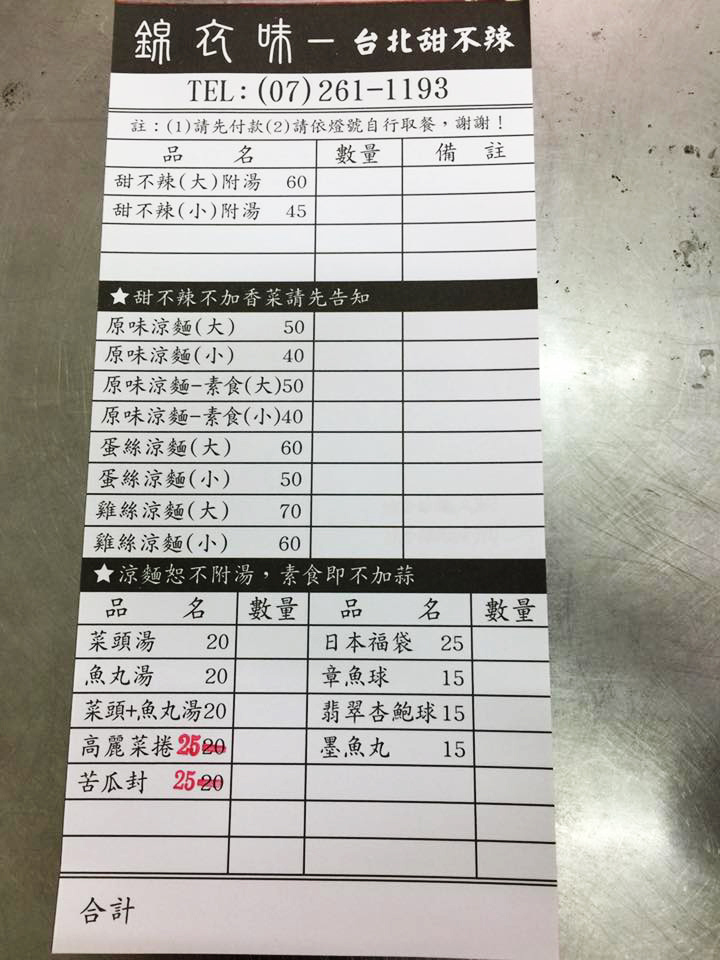 錦衣味－台北甜不辣
TEL:(07)261-1193
註：(1)請先付款(2)請依燈號自行取餐，謝謝！
品 名 數量 備 註
甜不辣(大)附湯 60
甜不辣(小)附湯 45
★甜不辣不加香菜請先告知
原味涼麵(大) 50
原味涼麵(小) 40
原味涼麵-素食(大)50
原味涼麵-素食(小)40
蛋絲涼麵(大) 60
蛋絲涼麵(小) 50
雞絲涼麵(大) 70
雞絲涼麵(小) 60
★涼麵恕不附湯，素食即不加蒜
品 名 數量 品 名 數量
菜頭湯 20 日本福袋 25
魚丸湯 20 章魚球 15
菜頭+魚丸湯20 翡翠杏鮑球15
高麗菜捲 25 20 墨魚丸 15
苦瓜封 25 20
合計